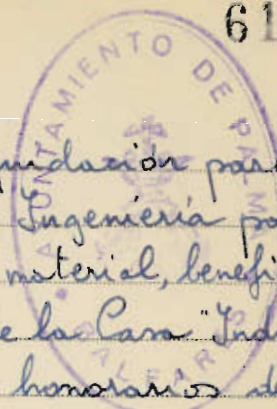 61
AYUNTAMIENTO DE PALMA
BALEARES
uidación par
Ingeniería pa
material, benefi
e la Casa "Ind
honorarios d